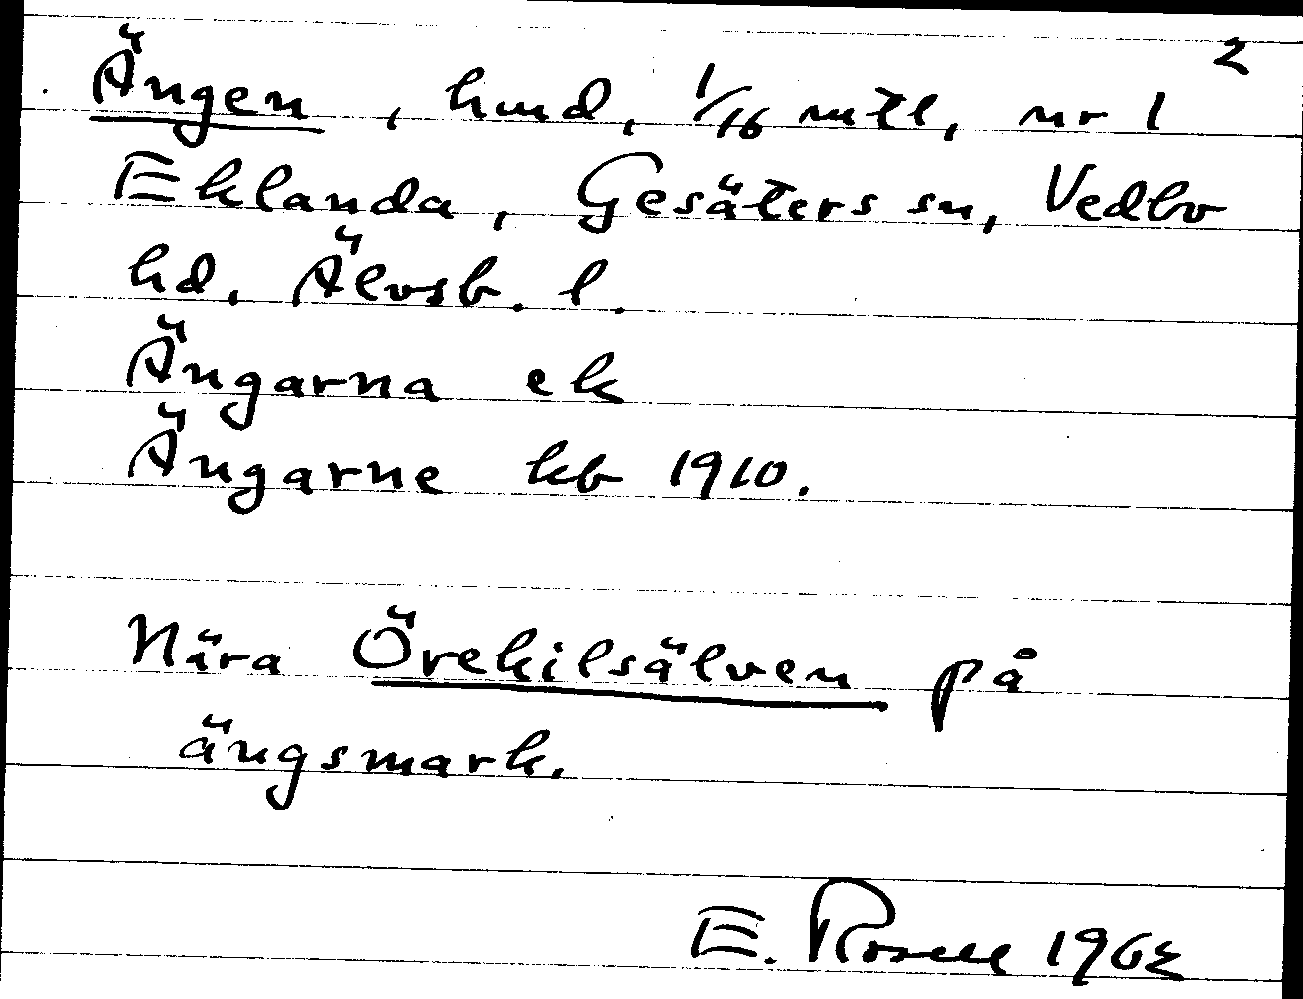 2
Ängen, hmd, 1/16 mtl, nr 1
Eklanda, Gesäters sn, Vedbo
hd. Älvsb. l.
Ängarna ek
Ängarne kb 1910.
Nära Örekilsälven på
ängsmark.
E. Rosell 1962